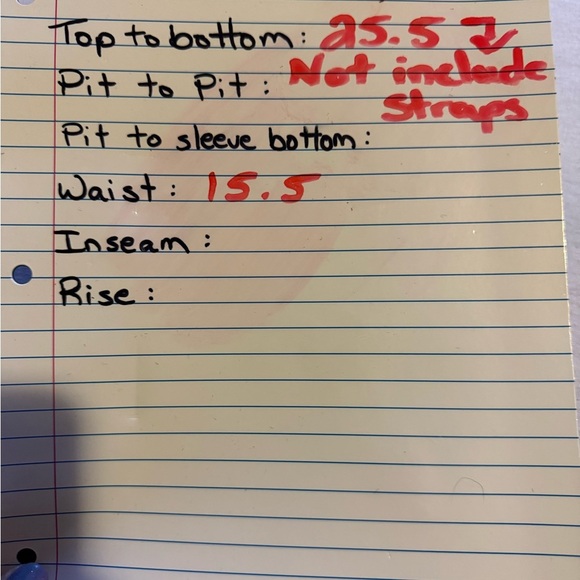 Top to bottom: 25.5 ↓
Pit to Pit: Not include
Straps
Pit to sleeve bottom:
Waist: 15.5
Inseam:
Rise: